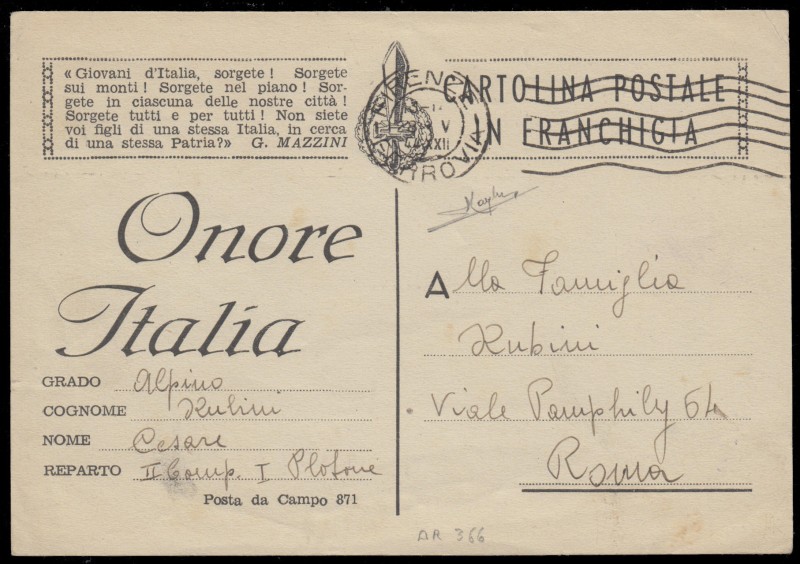 « Giovani d'Italia, sorgete ! Sorgete
sui monti ! Sorgete nel piano ! Sor-
gete in ciascuna delle nostre città !
Sorgete tutti e per tutti ! Non siete
voi figli di una stessa Italia, in cerca
di una stessa Patria?» G. MAZZINI
CARTOLINA POSTALE
IN FRANCHIGIA
V
XXII
Onore
Italia
GRADO Alpino
COGNOME Rubini
NOME Cesare
REPARTO II Comp. I Plotone
Posta da Campo 871
Alla Famiglia
Rubini
Viale Pamphily 64
Roma
AR 366